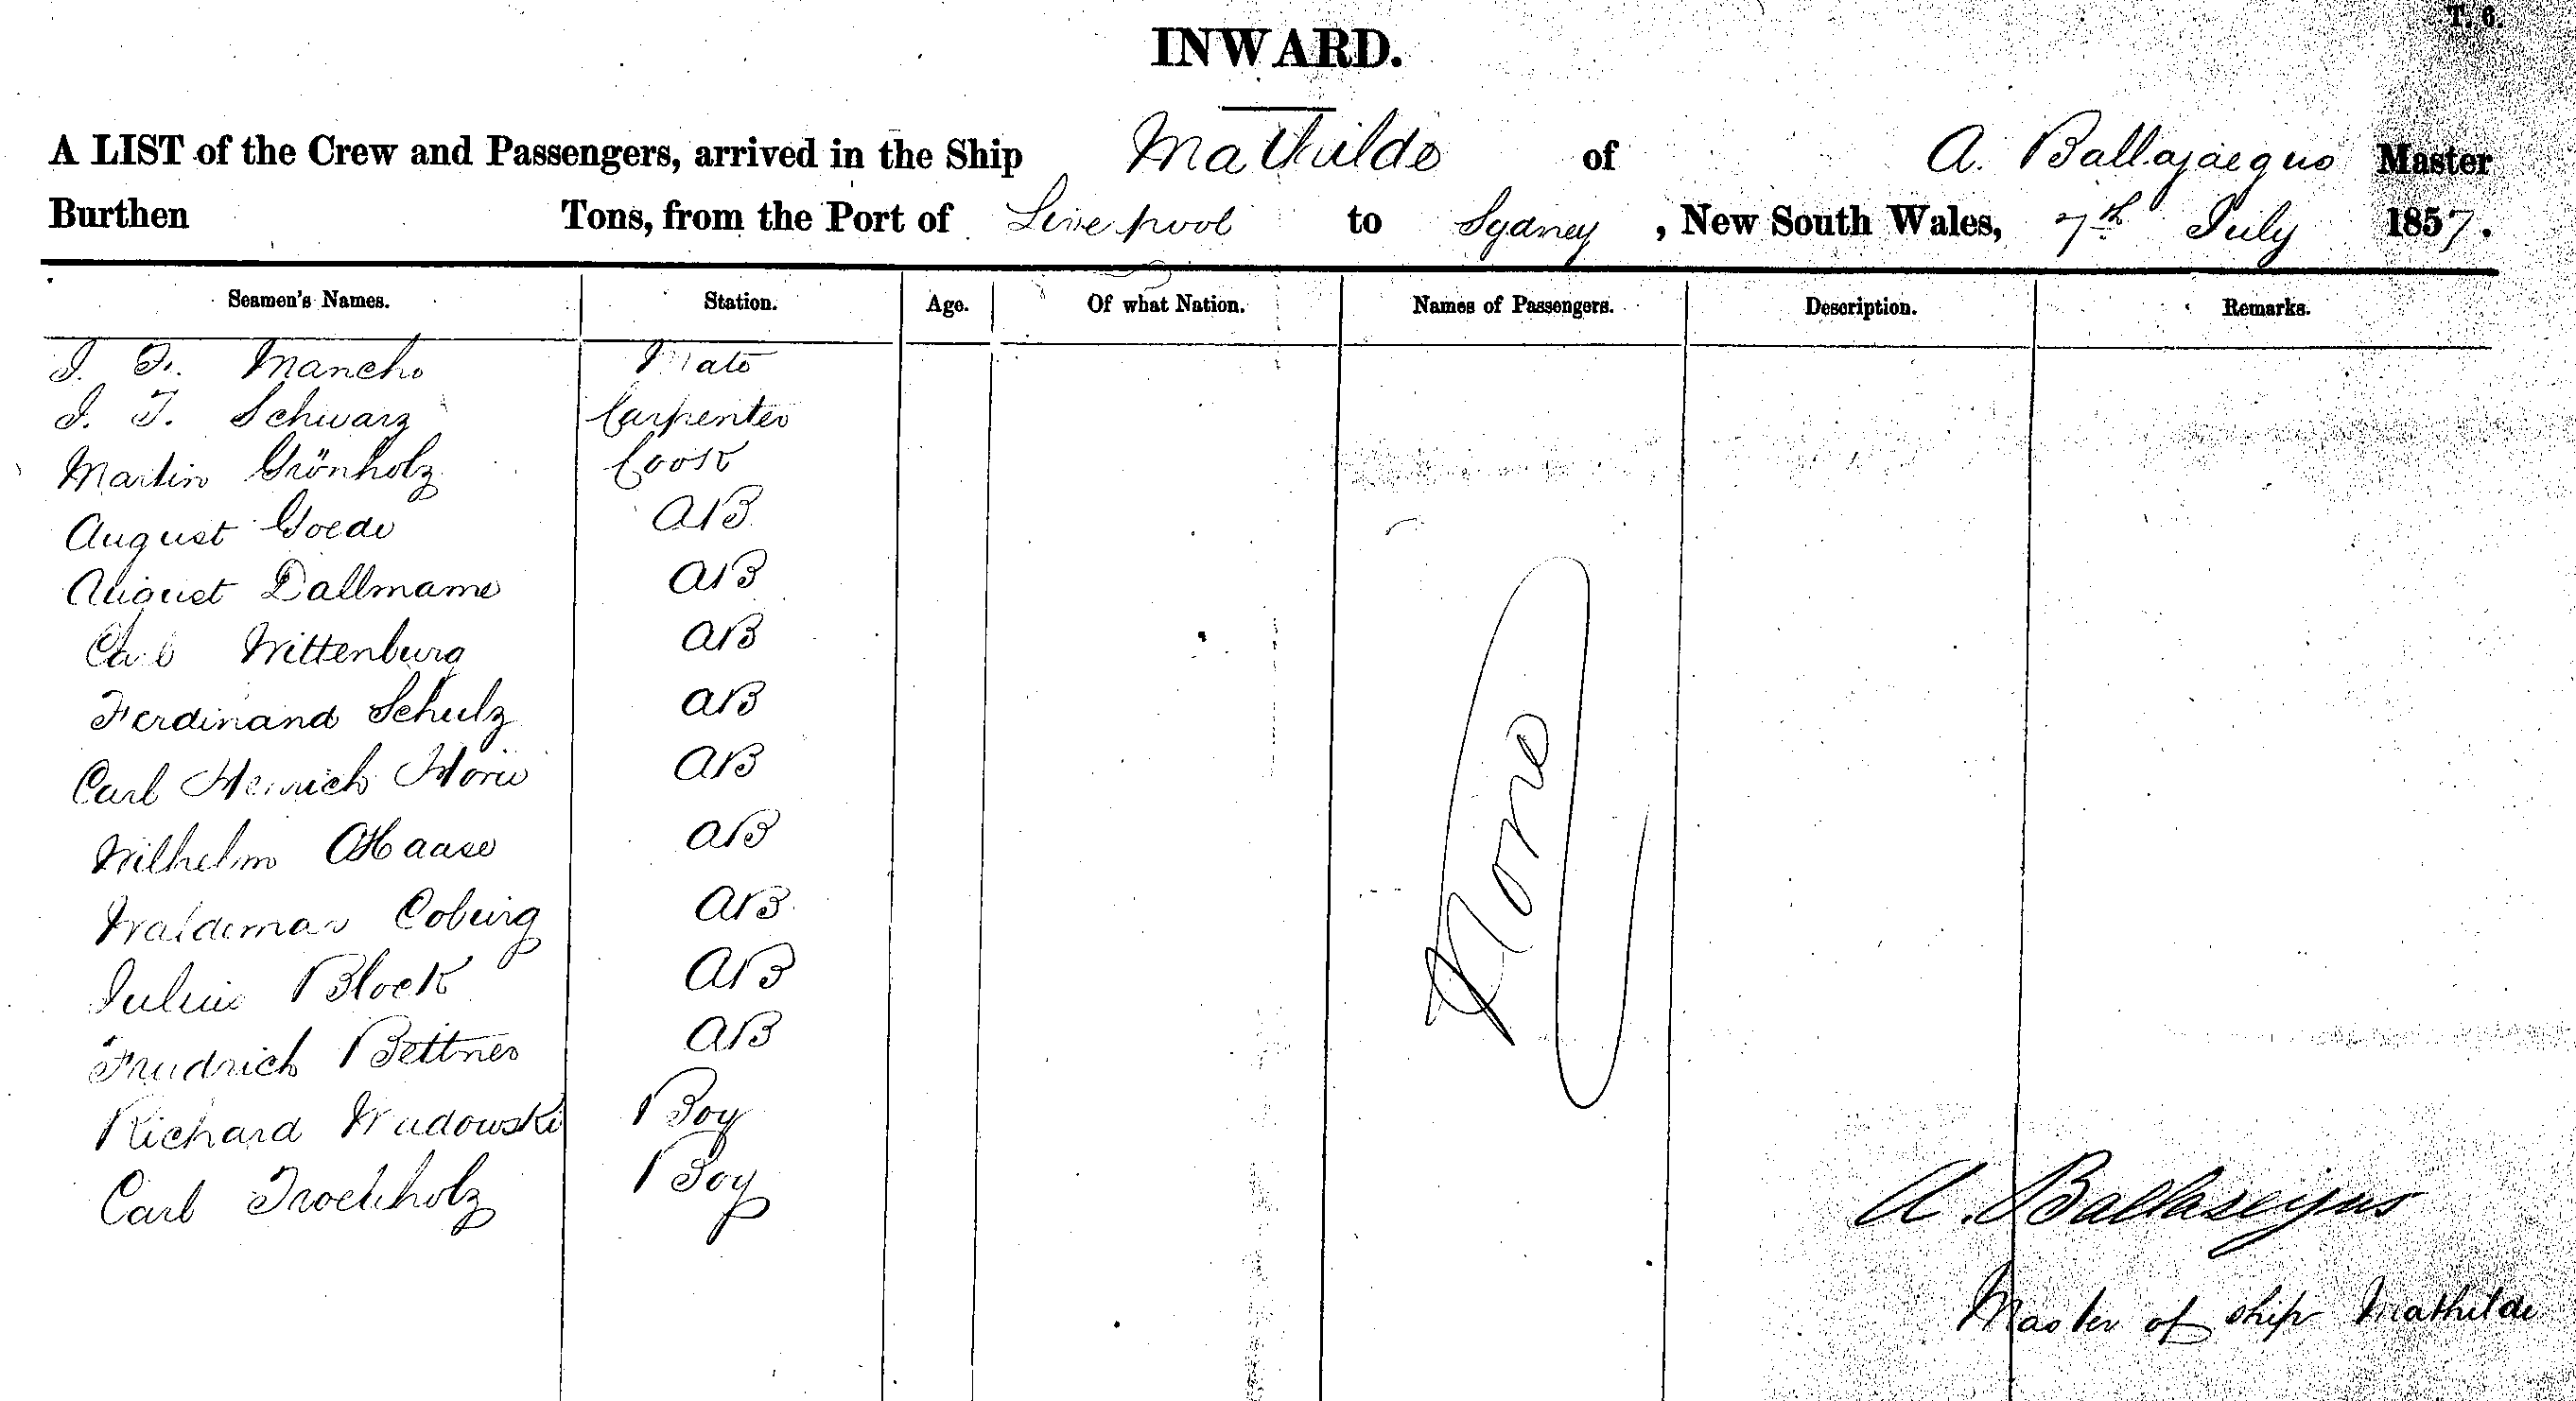 T. 6.
INWARD.
A LIST of the Crew and Passengers, arrived in the Ship Mathilde of A. Ballajaeque Master
Burthen Tons, from the Port of Liverpool to Sydney, New South Wales, 7th July 1857.
Seamen's Names. Station. Age. Of what Nation. Names of Passengers. Description. Remarks.
J. F. Manche Mate
J. F. Schwarz Carpenter
Martin Grönholz Cook
August Goede AB
August Dallmame AB
Carl Wittenburg AB
Ferdinand Schulz AB
Carl Heinrich AB
Wilhelm Haase AB
Waldemar Coburg AB
Julius Block AB
Friedrich Bettner AB
Richard Wudowski Boy
Carl Trockholz Boy
None
A. Ballaseyus
Master of ship Mathilde